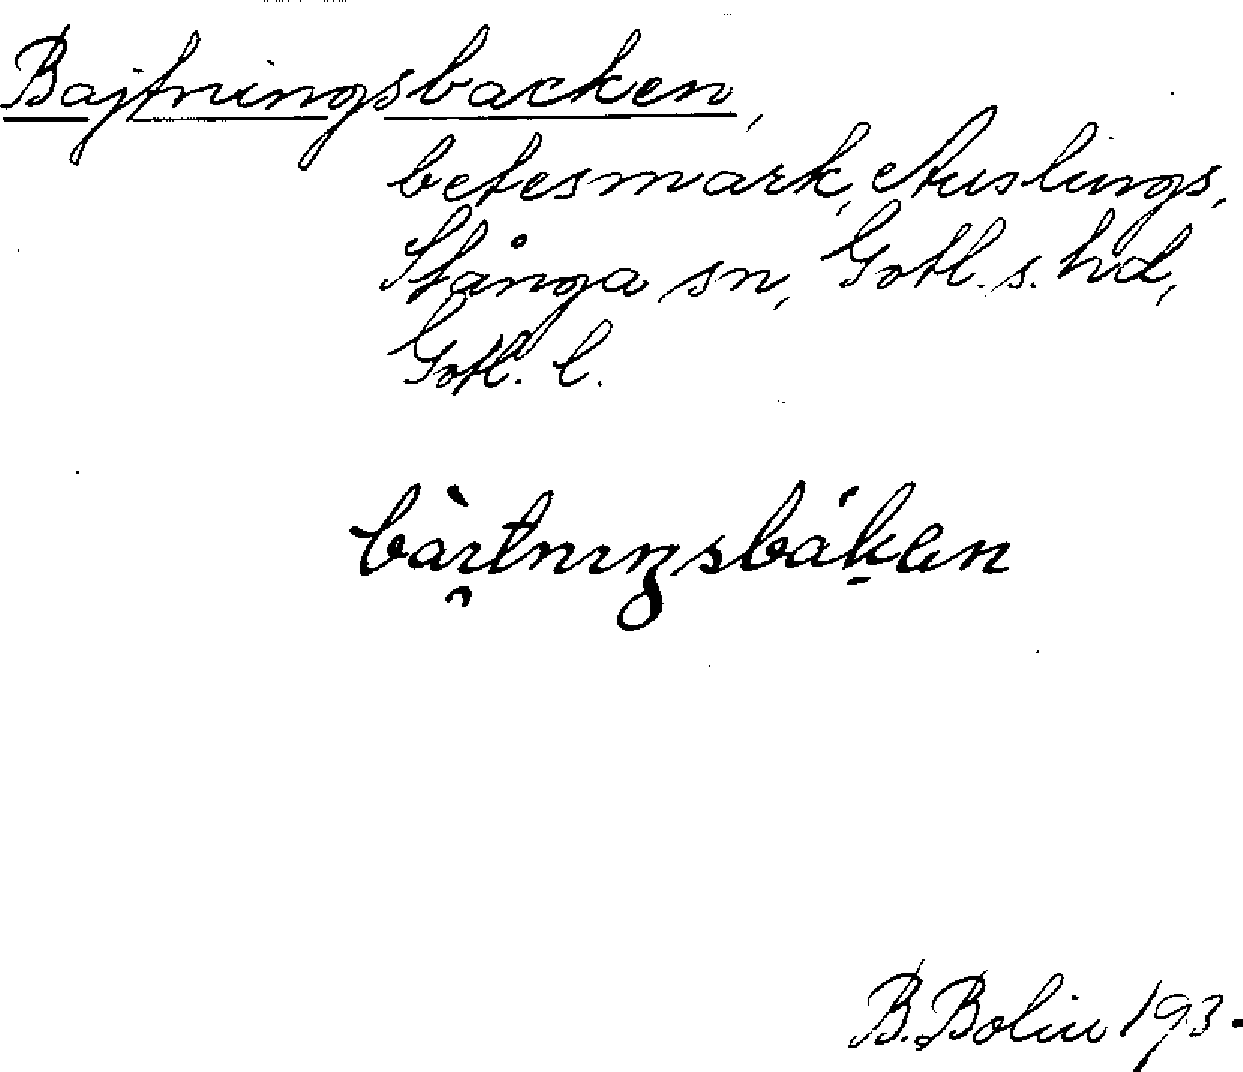 Bajtningsbacken,
betesmark, Auslungs,
Stånga sn, Gotl. s. hd,
Gotl. l.
B. Bolin 193